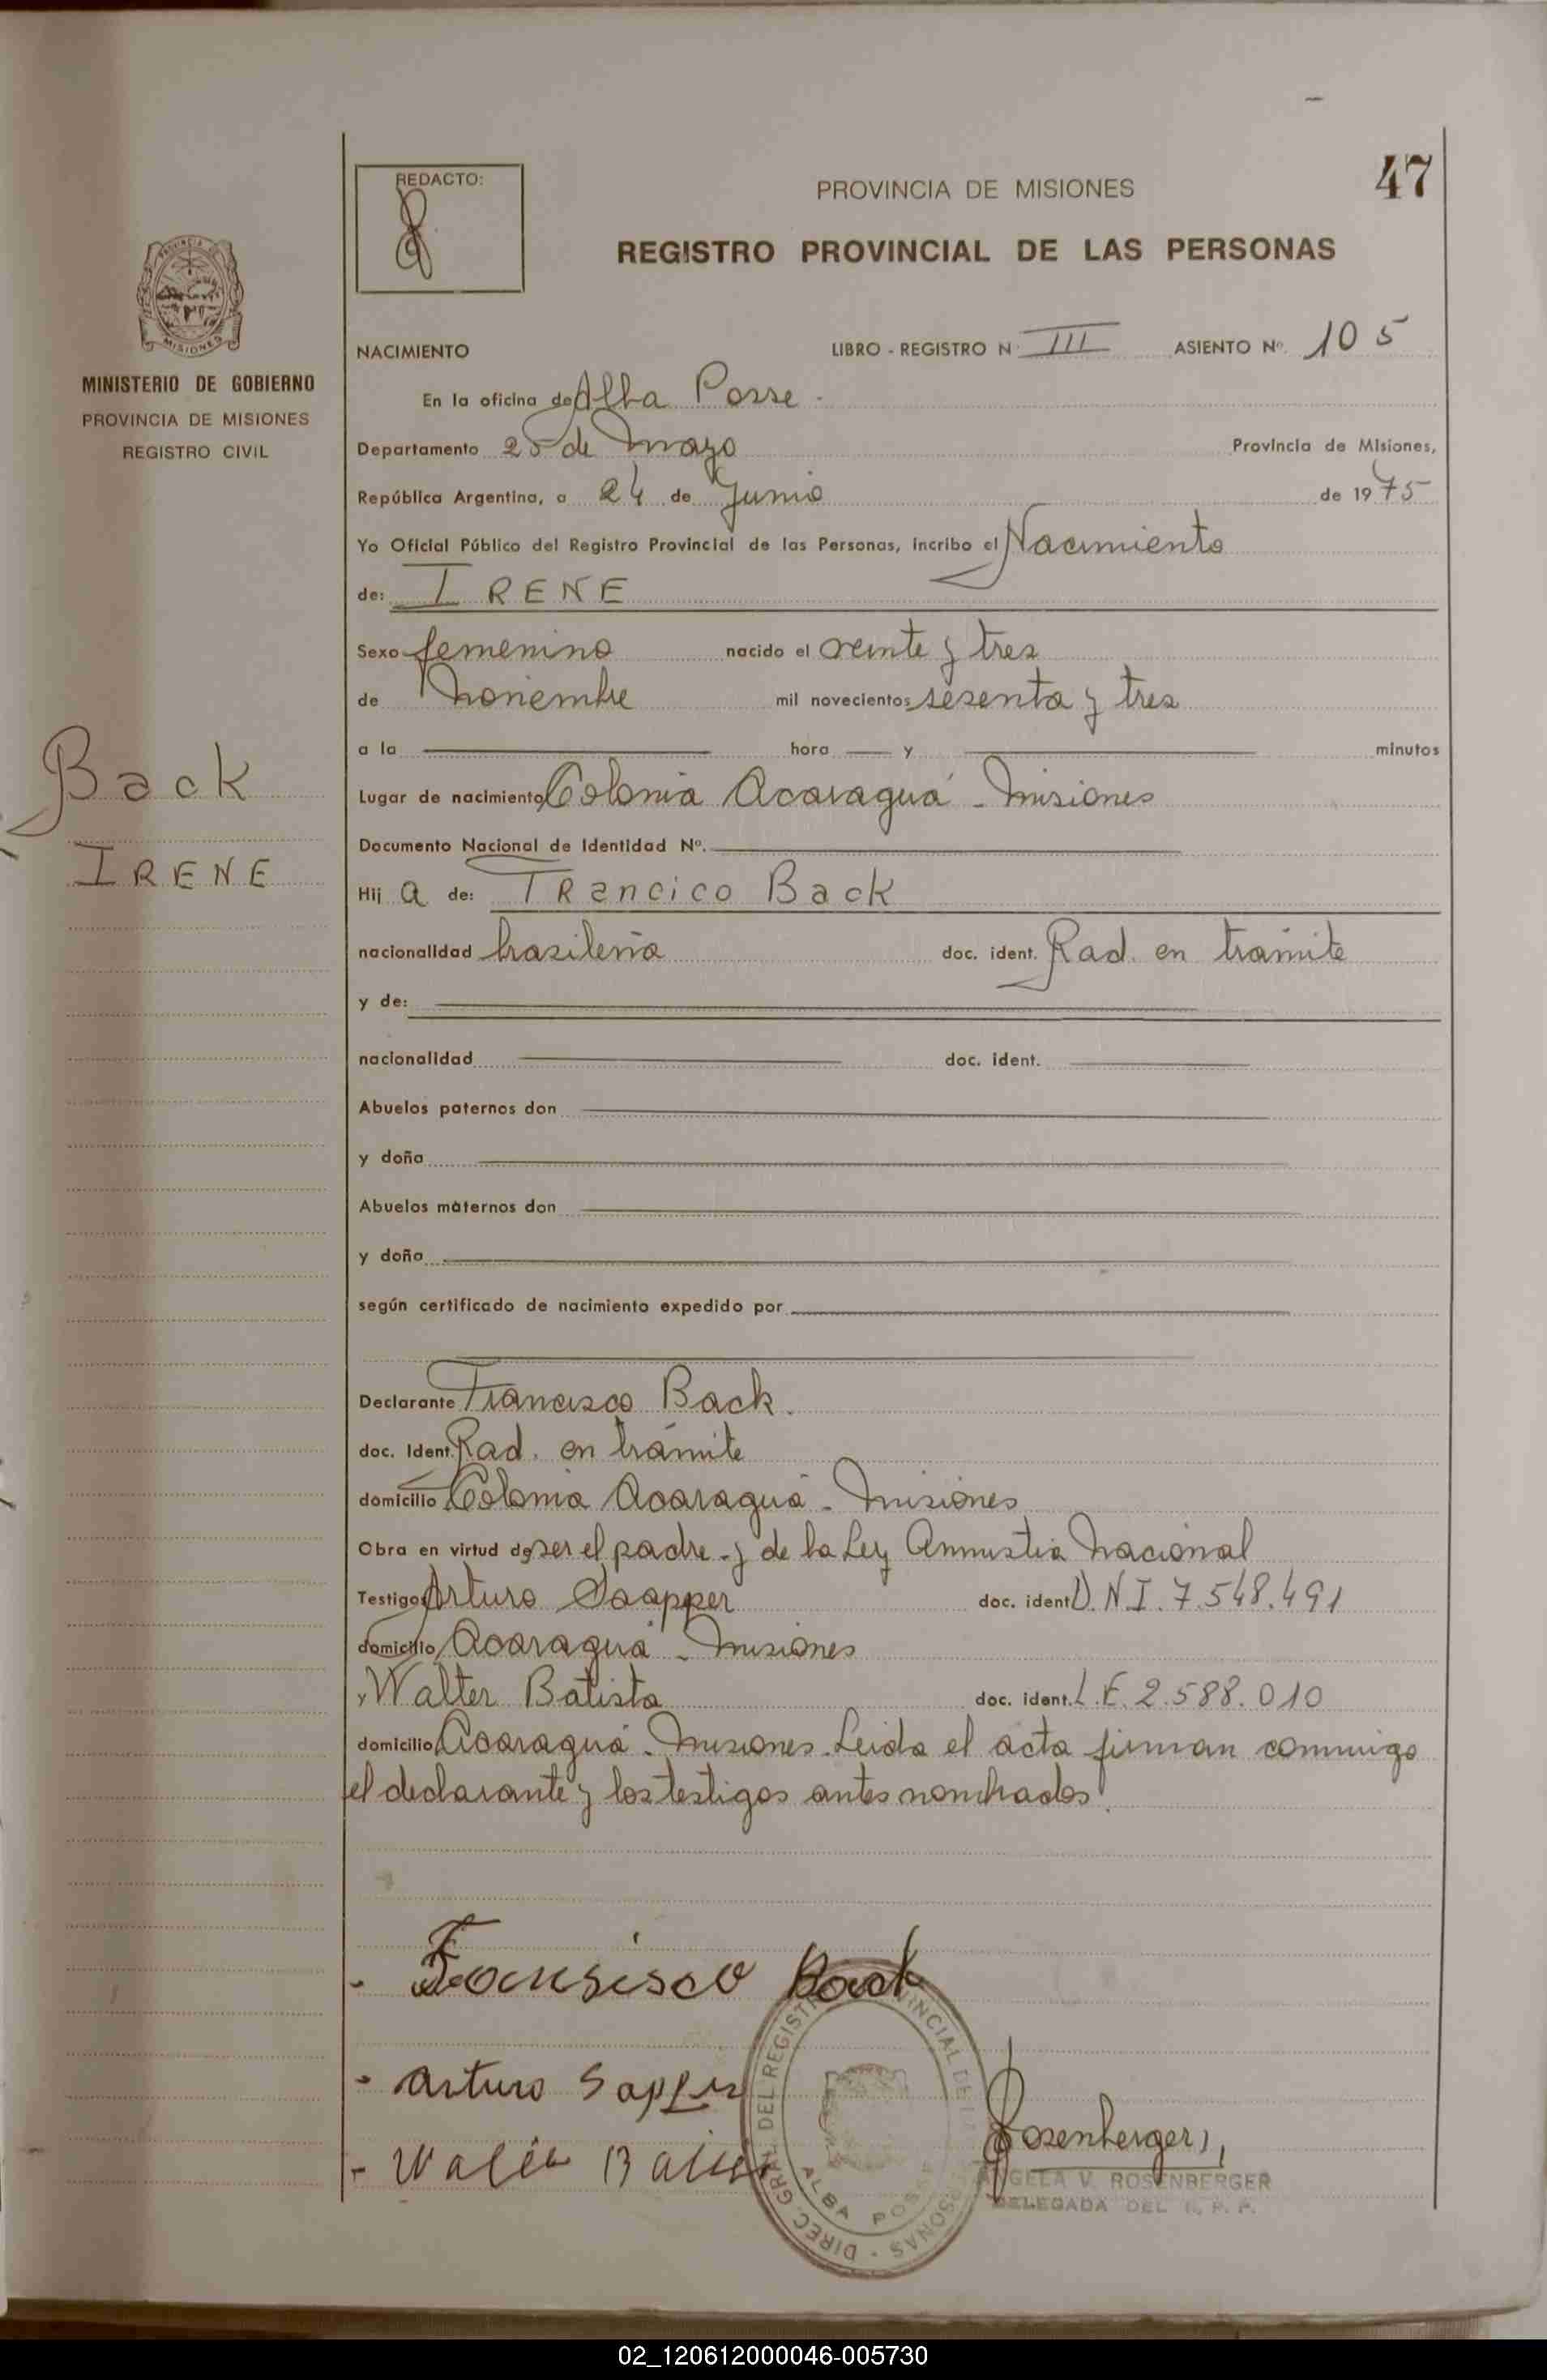 47
REDACTO:
PROVINCIA DE MISIONES
REGISTRO PROVINCIAL DE LAS PERSONAS
MISIONES
MINISTERIO DE GOBIERNO
PROVINCIA DE MISIONES
REGISTRO CIVIL
NACIMIENTO LIBRO - REGISTRO N III ASIENTO Nº. 105
En la oficina de Alba Posse
Departamento 25 de Mayo Provincia de Misiones,
República Argentina, a 24 de Junio de 1975
Yo Oficial Público del Registro Provincial de las Personas, incribo el Nacimiento
de: IRENE
Sexo femenino nacido el veinte y tres
de Noviembre mil novecientos sesenta y tres
a la hora y minutos
Back
IRENE
Lugar de nacimiento Colonia Acaraguá - Misiones
Documento Nacional de Identidad Nº.
Hij a de: Francico Back
nacionalidad brasileña doc. ident. Rad. en trámite
y de:
nacionalidad doc. ident.
Abuelos paternos don
y doña
Abuelos maternos don
y doña
según certificado de nacimiento expedido por
Declarante Francisco Back.
doc. Ident. Rad. en trámite
domicilio Colonia Acaraguá - Misiones
Obra en virtud de ser el padre - y de la Ley Amnistia Nacional
Testigos Arturo Saapper doc. ident D.N.I. 7.548.491
domicilio Acaraguá - Misiones
y Walter Batista doc. ident. L.E. 2.588.010
domicilio Acaraguá - Misiones. Leida el acta firman conmigo
el declarante y los testigos antes nombrados.
Fransisco Back
- Arturo Sapper
- Walter
Rosenberger
ANGELA V. ROSENBERGER
DELEGADA DEL R. P. P.
DIREC. GRAL. DEL REGISTRO PROVINCIAL DE LAS PERSONAS -
ALBA POSSE
02_120612000046-005730